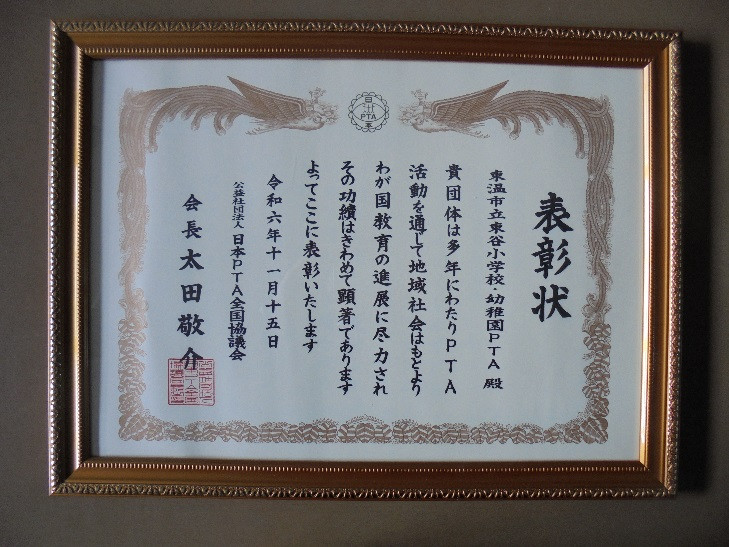 日
PTA
表彰状
東温市立東谷小学校・幼稚園PTA 殿
貴団体は多年にわたりPTA
活動を通して地域社会はもとより
わが国教育の進展に尽力され
その功績はきわめて顕著であります
よってここに表彰いたします
令和六年十一月十五日
公益社団法人 日本PTA全国協議会
会長 太田敬介